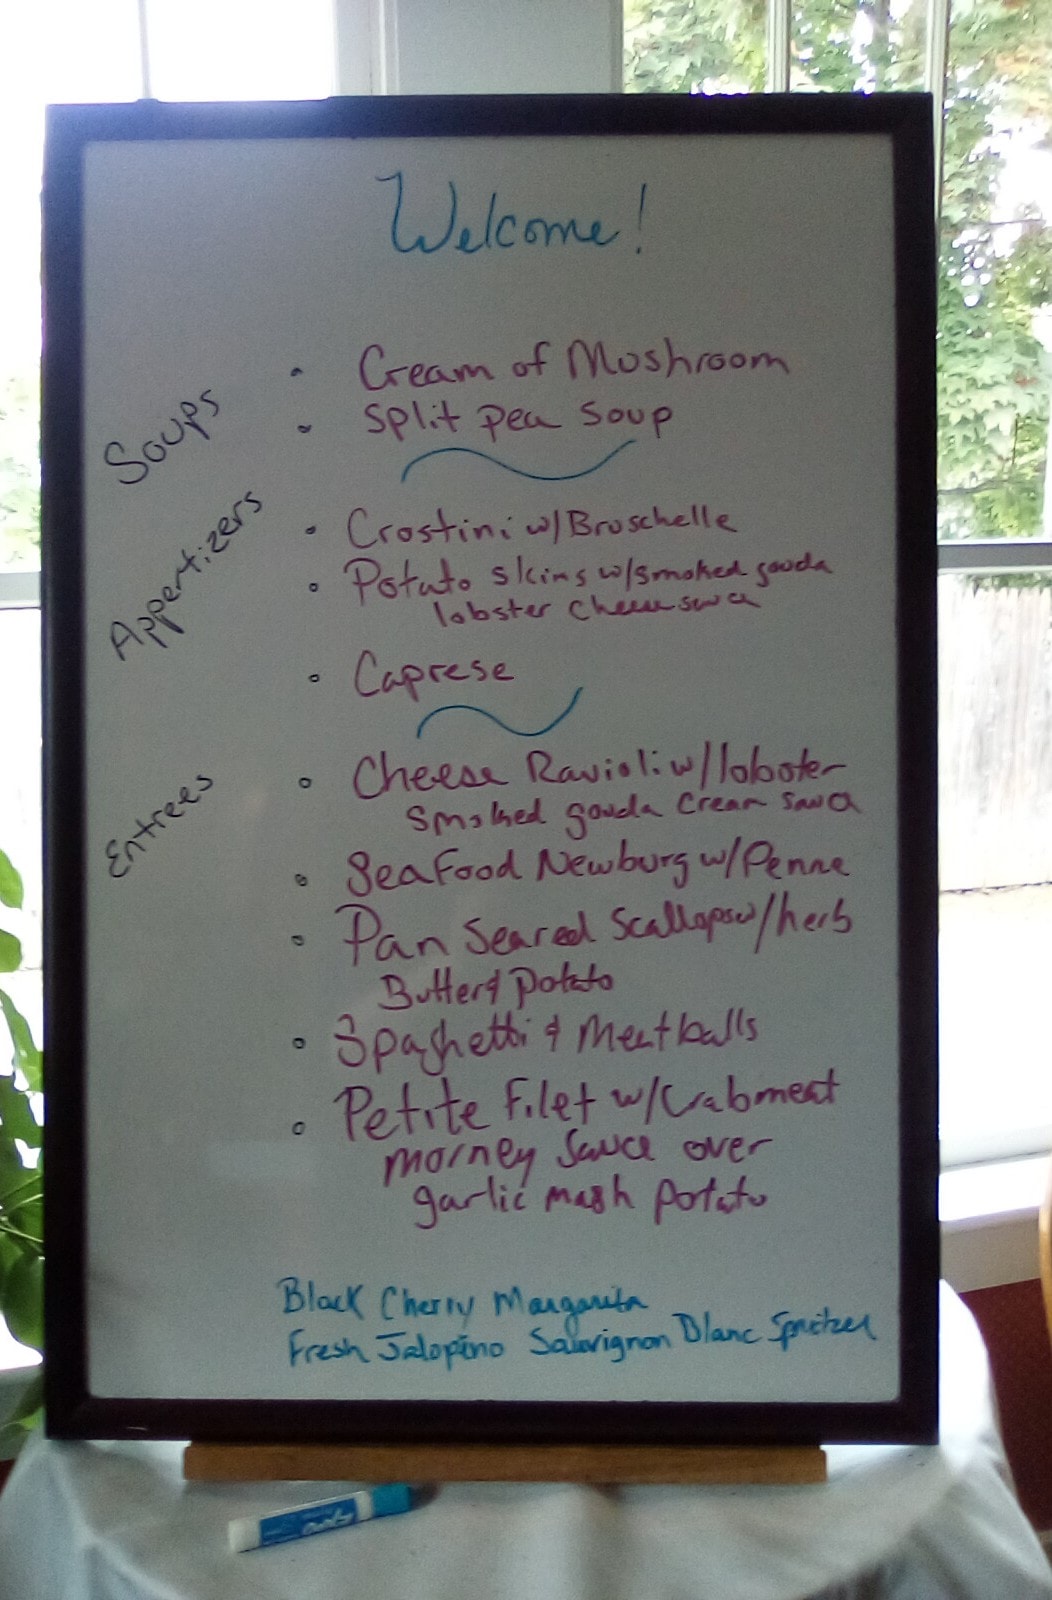 Welcome!
Soups
Cream of Mushroom
Split Pea Soup
Appertizers
Crostini w/Bruschelle
Potato skins w/smoked gouda
lobster cheese sauce
Caprese
Entrees
Cheese Ravioli w/lobster
smoked gouda cream sauce
Seafood Newburg w/Penne
Pan Seared Scallops w/herb
Butter & potato
Spaghetti & Meatballs
Petite Filet w/Crabmeat
morney sauce over
garlic mash potato
Black Cherry Margarita
Fresh Jalopeno Sauvignon Blanc Spritzer
EXPO